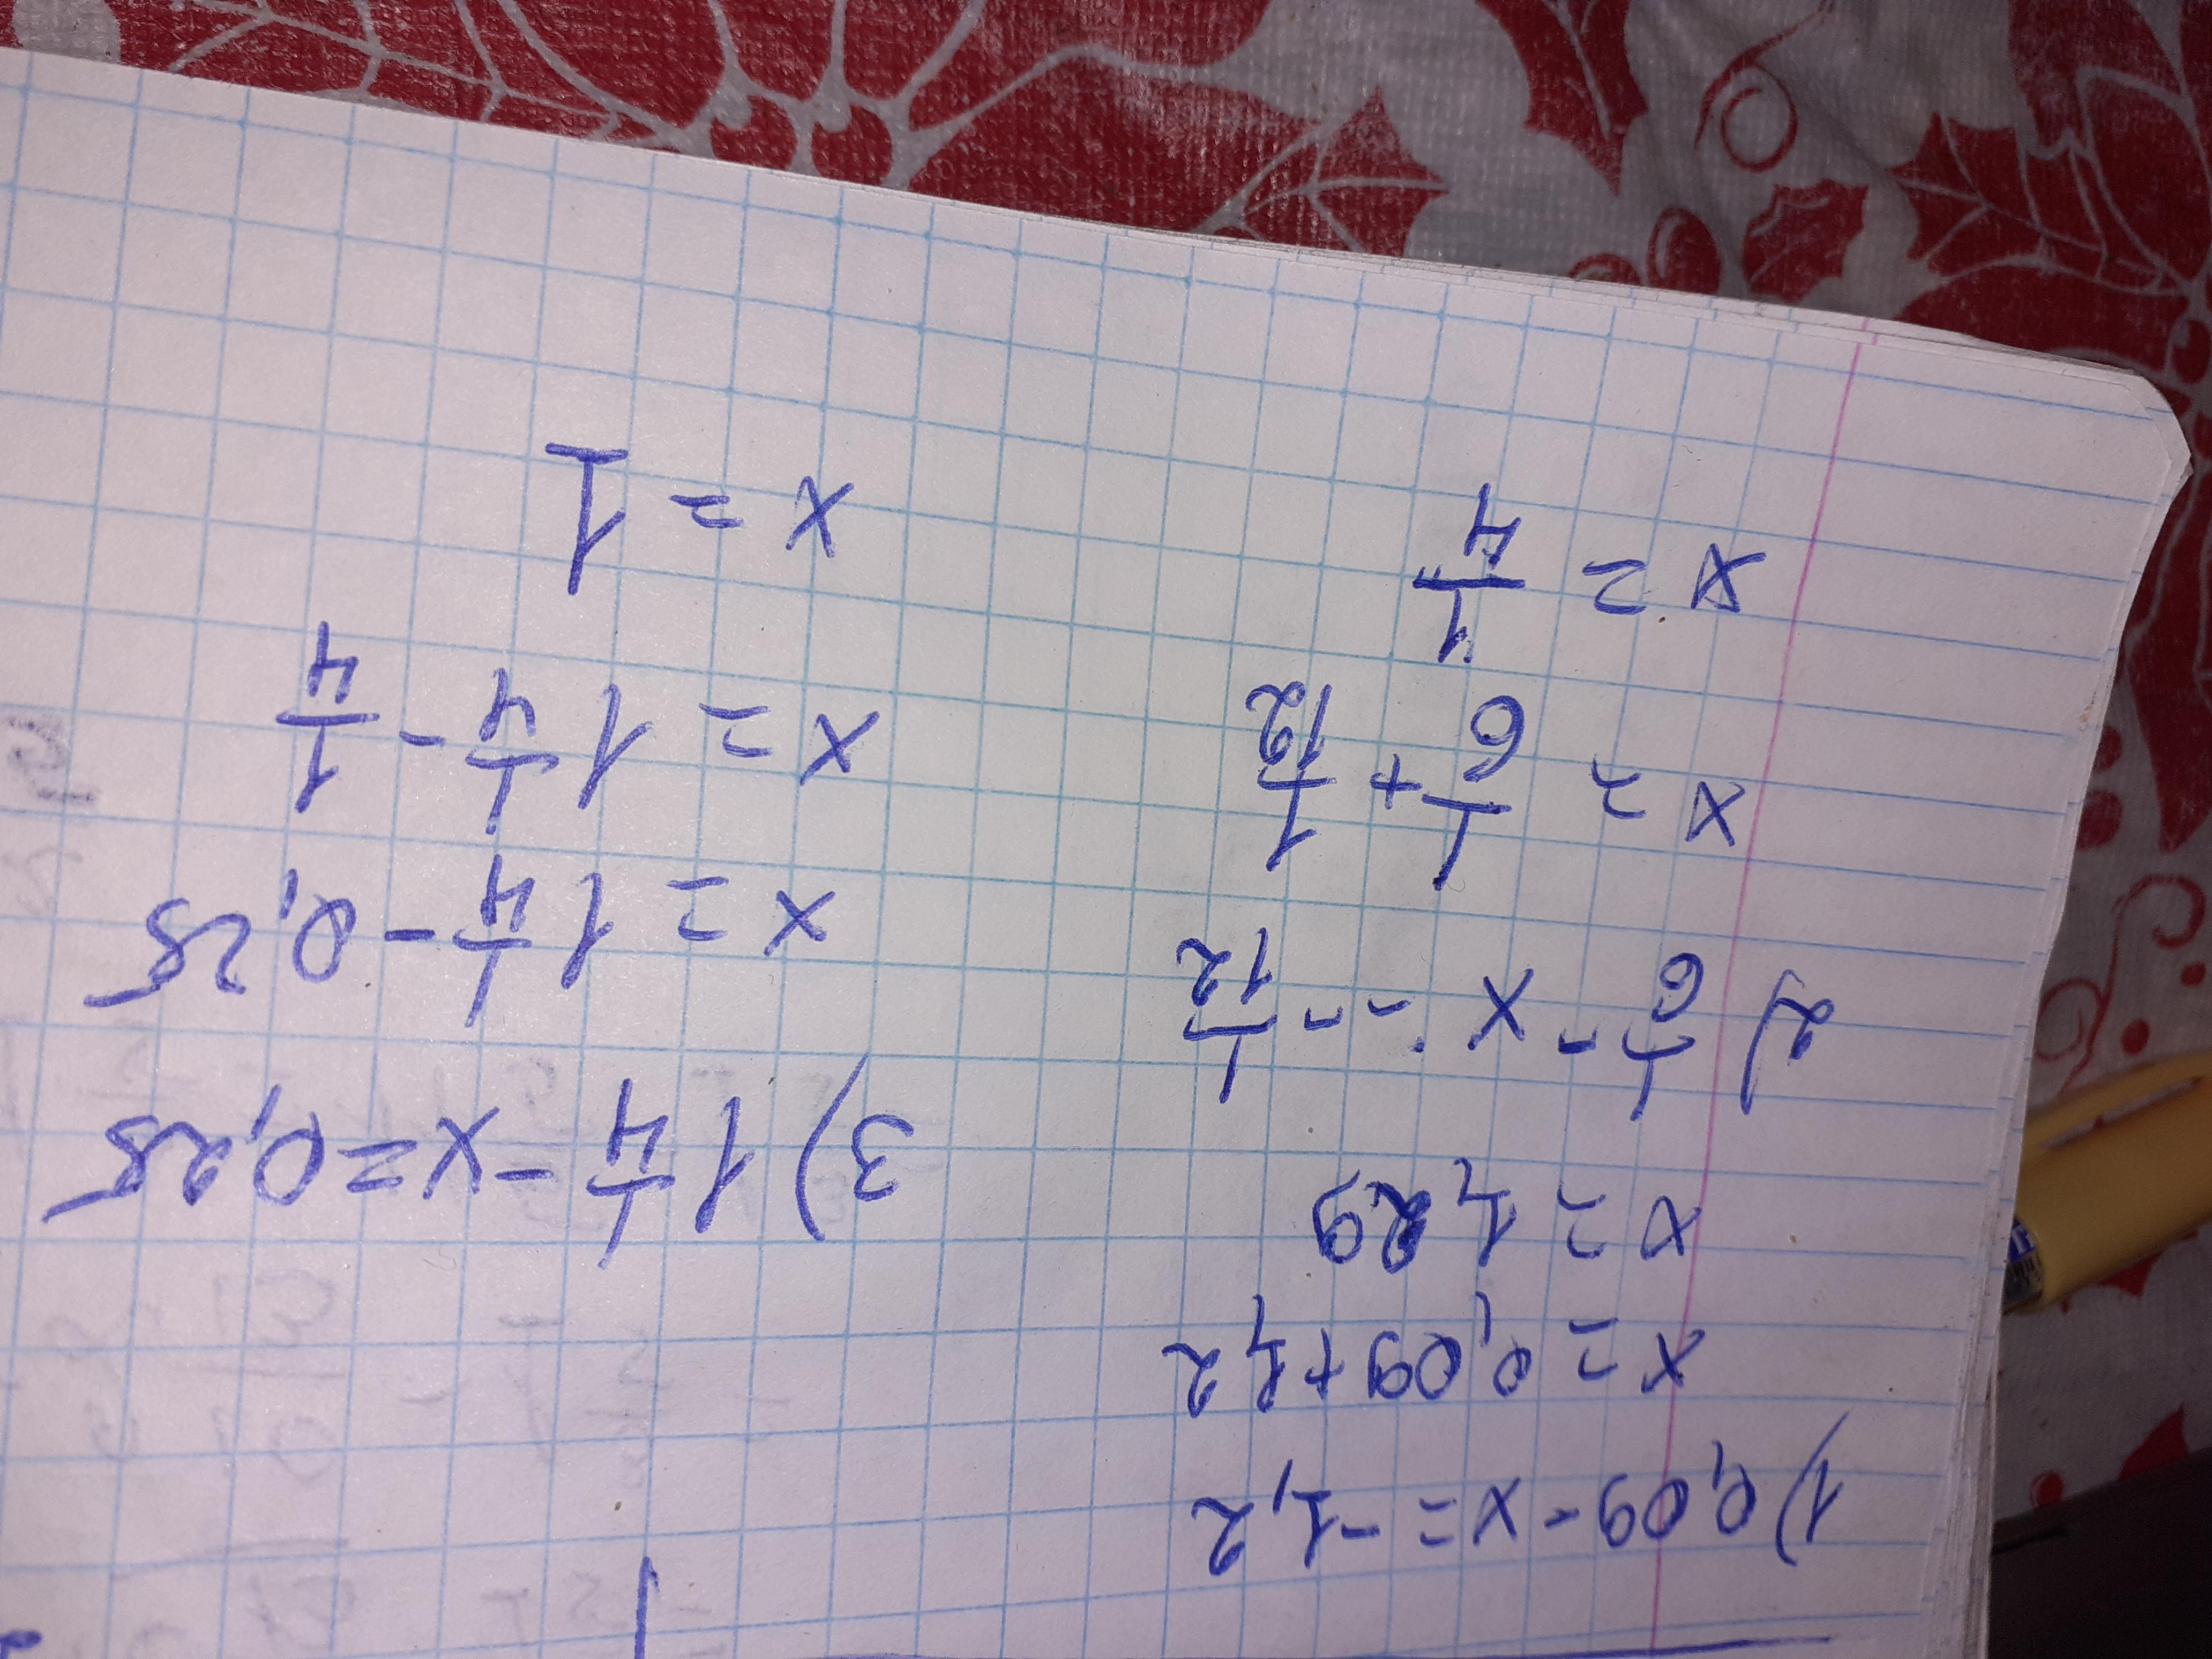 1) 0,09 - x = -1,2
x = 0,09 + 1,2
x = 1,29
2) 1/6 - x = -1/12
x = 1/6 + 1/12
x = 1/4
3) 1 1/4 - x = 0,25
x = 1 1/4 - 0,25
x = 1 1/4 - 1/4
x = 1